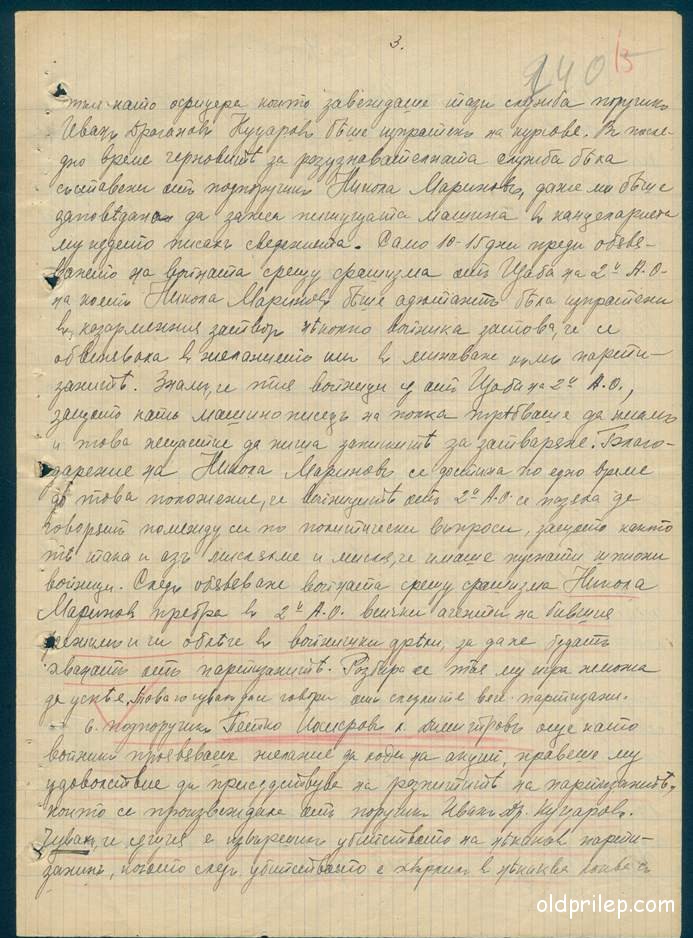 3.
240 15
тъй като офицера който завеждаше тази служба поручик
Иванъ Драгановъ Куцаровъ бѣше изпратенъ на курсове. Въ после-
дно време черновитѣ за разузнавателната служба бѣха
съставени отъ подпоручикъ Никола Мариновъ, даже ми бѣше
заповѣдано да занеса пишущата машина въ канцеларията
му където писахъ сведенията. Само 10-15 дни преди обявя-
ването на войната срещу фашизма отъ Щаба на 2ᵃ А.О.
на който Никола Мариновъ бѣше адютантъ бѣха изпратени
въ казармения затворъ нѣколко войника затова, че се
обвиняваха въ желанието имъ въ минаване къмъ парти-
занитѣ. Знамъ, че тия войници с отъ Щаба на 2ᵃ А.О.,
защото като машинописецъ на полка трѣбваше да пиша
и това нещастие да пиша заповѣдитѣ за затваряне. Благо-
дарение на Никола Мариновъ се достигна по едно време
до това положение, че войницитѣ отъ 2ᵃ А.О. се пазеха да
говорятъ помежду си по политически въпроси, защото както
тѣ така и азъ мислехме и мисля, че имаше пуснати шпиони
войници. След обявяване войната срещу фашизма Никола
Мариновъ прибра въ 2ᵃ А.О. всички агенти на бившия
режимъ и ги облѣче въ войнишки дрехи, за да не бѫдатъ
хванати отъ партизанитѣ. Разбира се тая му игра не можа
да успѣе. Това го чувахъ да говори отъ следните вече партизани.
6. подпоручикъ Петко Димитровъ още като
войникъ проявяваше желание да ходи на акции, правеше му
удоволствие да присѫствува на разпититѣ на партизанитѣ,
които се произвеждаха отъ поручикъ Иванъ Др. Куцаровъ.
Чувахъ, че е извършилъ убийството на нѣкакъв парти-
занинъ, когото следъ убийството е хвърлилъ в нѣкаква
oldprilep.com